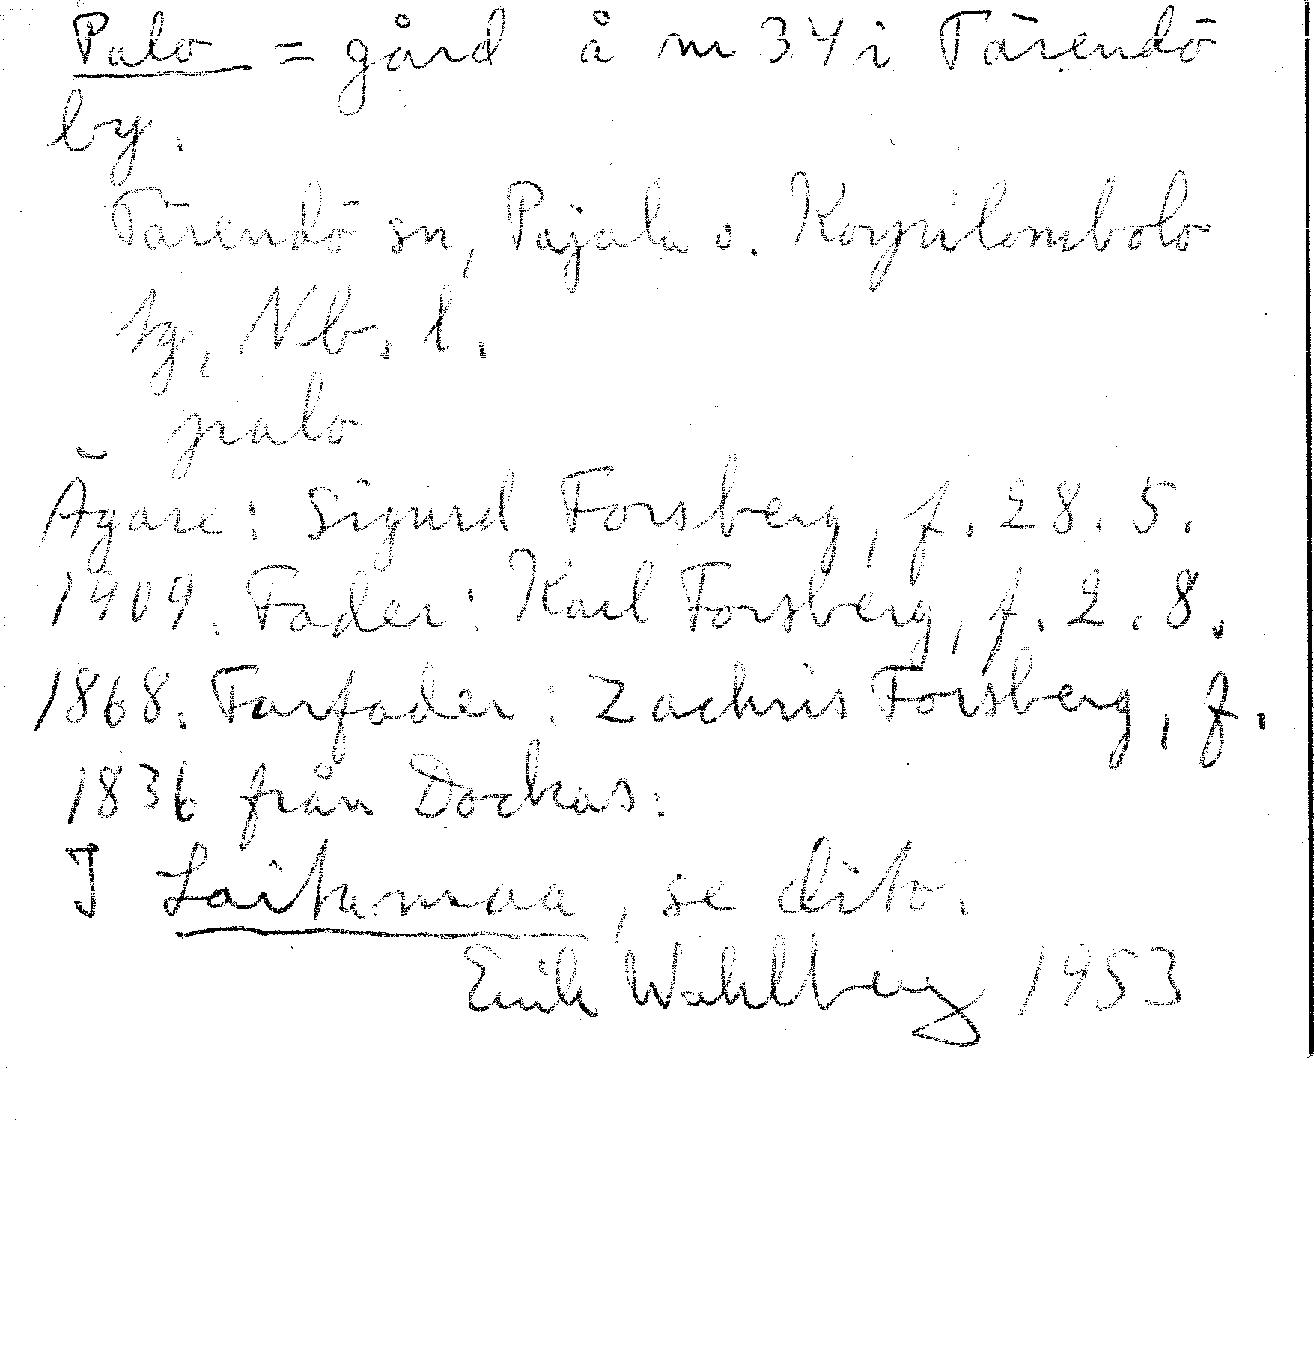 Palo = gård å nr 34 i Tärendö
by.
Tärendö sn, Pajala o. Korpilombolo
tg, Nb. l.
palo
Ägare: Sigurd Forsberg, f. 28. 5.
1909. Fader: Karl Forsberg, f. 2. 8.
1868. Farfader: Zachris Forsberg, f.
1836 från Dockas.
I Laitamaa, se dito.
Erik Wahlberg 1953